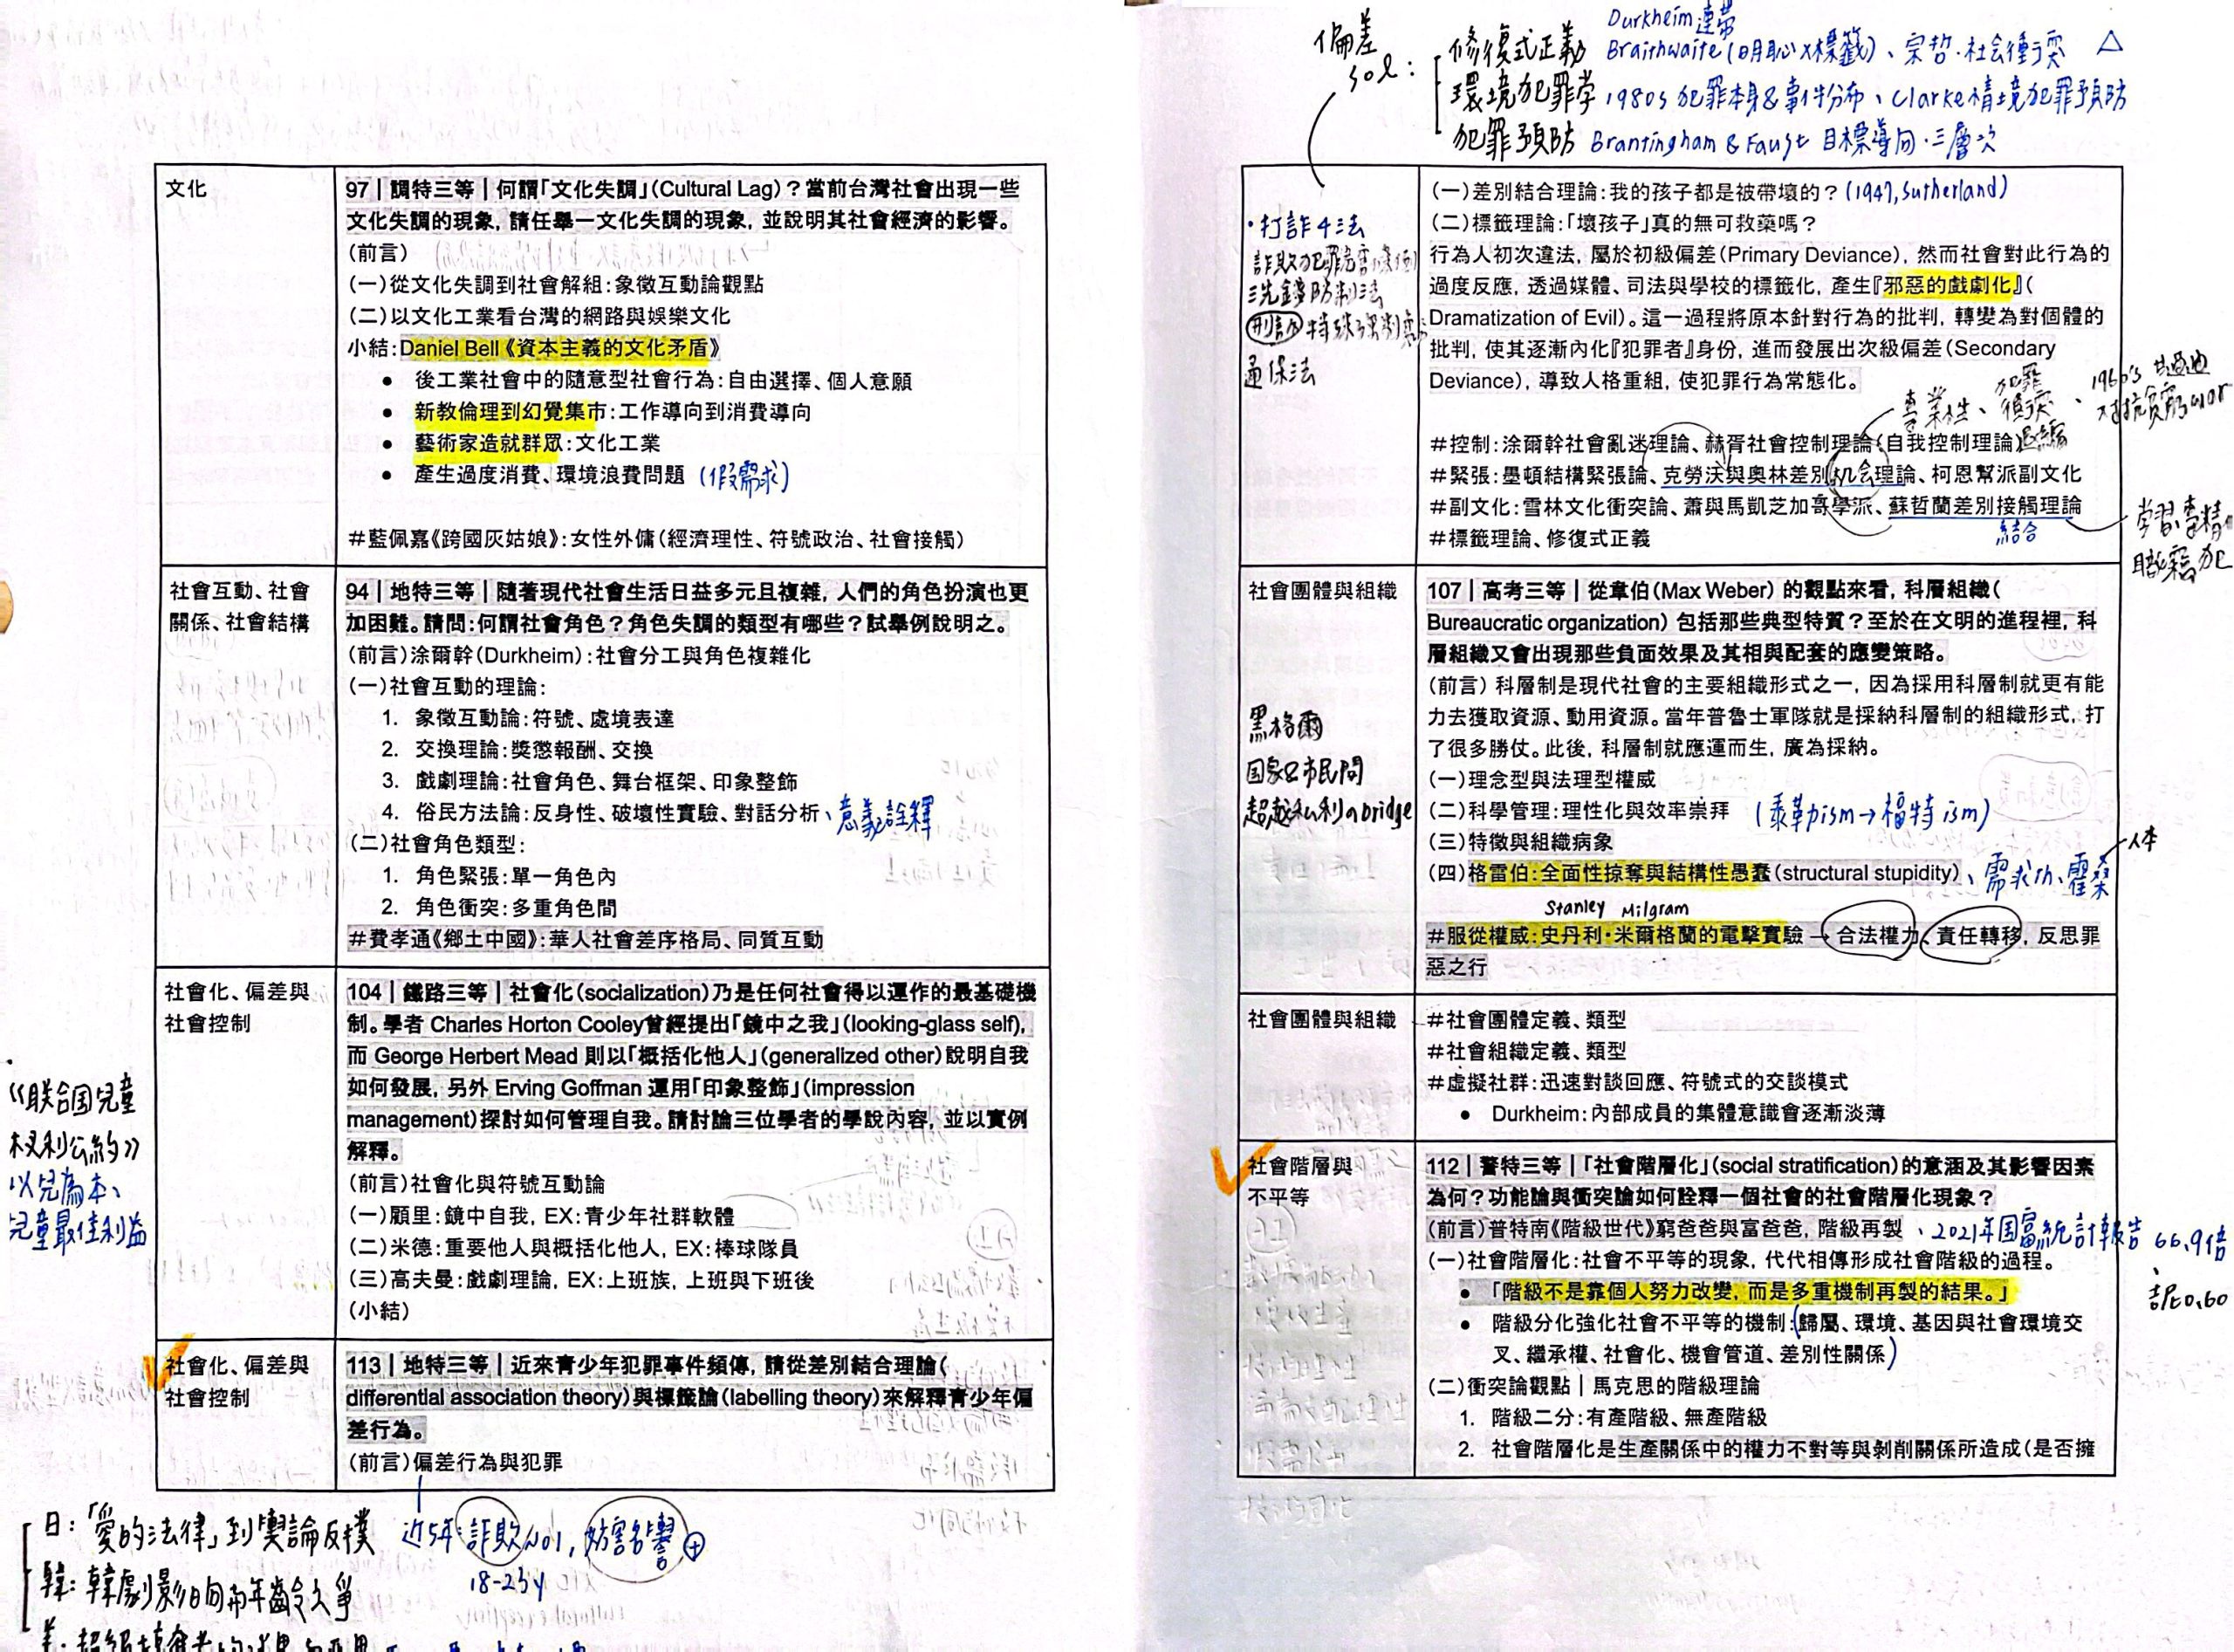 文化
97｜調特三等｜何謂「文化失調」（Cultural Lag）？當前台灣社會出現一些
文化失調的現象，請任舉一文化失調的現象，並說明其社會經濟的影響。
（前言）
（一）從文化失調到社會解組：象徵互動論觀點
（二）以文化工業看台灣的網路與娛樂文化
小結：Daniel Bell《資本主義的文化矛盾》
● 後工業社會中的隨意型社會行為：自由選擇、個人意願
● 新教倫理到幻覺集市：工作導向到消費導向
● 藝術家造就群眾：文化工業
● 產生過度消費、環境浪費問題（假需求）
＃藍佩嘉《跨國灰姑娘》：女性外傭（經濟理性、符號政治、社會接觸）
社會互動、社會
關係、社會結構
94｜地特三等｜隨著現代社會生活日益多元且複雜，人們的角色扮演也更
加困難。請問：何謂社會角色？角色失調的類型有哪些？試舉例說明之。
（前言）涂爾幹（Durkheim）：社會分工與角色複雜化
（一）社會互動的理論：
1. 象徵互動論：符號、處境表達
2. 交換理論：獎懲報酬、交換
3. 戲劇理論：社會角色、舞台框架、印象整飾
4. 俗民方法論：反身性、破壞性實驗、對話分析、意義詮釋
（二）社會角色類型：
1. 角色緊張：單一角色內
2. 角色衝突：多重角色間
＃費孝通《鄉土中國》：華人社會差序格局、同質互動
社會化、偏差與
社會控制
104｜鐵路三等｜社會化（socialization）乃是任何社會得以運作的最基礎機
制。學者 Charles Horton Cooley曾經提出「鏡中之我」（looking-glass self），
而 George Herbert Mead 則以「概括化他人」（generalized other）說明自我
如何發展，另外 Erving Goffman 運用「印象整飾」（impression
management）探討如何管理自我。請討論三位學者的學說內容，並以實例
解釋。
（前言）社會化與符號互動論
（一）顧里：鏡中自我，EX：青少年社群軟體
（二）米德：重要他人與概括化他人，EX：棒球隊員
（三）高夫曼：戲劇理論，EX：上班族，上班與下班後
（小結）
《联合国兒童
权利公約》
以兒為本、
兒童最佳利益
社會化、偏差與
社會控制
113｜地特三等｜近來青少年犯罪事件頻傳，請從差別結合理論（
differential association theory）與標籤論（labelling theory）來解釋青少年偏
差行為。
（前言）偏差行為與犯罪
日：「愛的法律」到輿論反撲
近5年：詐欺No1，妨害名譽⊕
18-23y
韓：韓劇影
偏差
sol：
Durkheim 連帶
修復式正義 Braithwaite（明恥×標籤）、宗哲·社会衝突 △
環境犯罪学 1980s 犯罪本身&事件分布、Clarke情境犯罪預防
犯罪預防 Brantingham & Faust 目標導向·三層次
・打詐4法
詐欺犯罪危害條例
洗錢防制法
刑訴 特殊强制處分
通保法
（一）差別結合理論：我的孩子都是被帶壞的？（1947，Sutherland）
（二）標籤理論：「壞孩子」真的無可救藥嗎？
行為人初次違法，屬於初級偏差（Primary Deviance），然而社會對此行為的
過度反應，透過媒體、司法與學校的標籤化，產生『邪惡的戲劇化』（
Dramatization of Evil）。這一過程將原本針對行為的批判，轉變為對個體的
批判，使其逐漸內化『犯罪者』身份，進而發展出次級偏差（Secondary
Deviance），導致人格重組，使犯罪行為常態化。
專業性、犯罪 衝突、
1960's
＃控制：涂爾幹社會亂迷理論、赫胥社會控制理論（自我控制理論）
＃緊張：墨頓結構緊張論、克勞沃與奧林差別机会理論、柯恩幫派副文化
＃副文化：雪林文化衝突論、蕭與馬凱芝加哥學派、蘇哲蘭差別接觸理論
結合
＃標籤理論、修復式正義
社會團體與組織
107｜高考三等｜從韋伯（Max Weber）的觀點來看，科層組織（
Bureaucratic organization）包括那些典型特質？至於在文明的進程裡，科
層組織又會出現那些負面效果及其相與配套的應變策略。
（前言）科層制是現代社會的主要組織形式之一，因為採用科層制就更有能
力去獲取資源、動用資源。當年普魯士軍隊就是採納科層制的組織形式，打
了很多勝仗。此後，科層制就應運而生，廣為採納。
（一）理念型與法理型權威
（二）科學管理：理性化與效率崇拜（泰勒ism→福特ism）
（三）特徵與組織病象
（四）格雷伯：全面性掠奪與結構性愚蠢（structural stupidity）、需求th、霍桑
人本
Stanley Milgram
＃服從權威：史丹利・米爾格蘭的電擊實驗→合法權力、責任轉移，反思罪
惡之行
黑格爾
国家&市民間
超越私利のbridge
社會團體與組織
＃社會團體定義、類型
＃社會組織定義、類型
＃虛擬社群：迅速對談回應、符號式的交談模式
● Durkheim：內部成員的集體意識會逐漸淡薄
社會階層與
不平等
112｜警特三等｜「社會階層化」（social stratification）的意涵及其影響因素
為何？功能論與衝突論如何詮釋一個社會的社會階層化現象？
（前言）普特南《階級世代》窮爸爸與富爸爸，階級再製、2021年国富統計報告 66.9倍
、吉尼0.60
（一）社會階層化：社會不平等的現象，代代相傳形成社會階級的過程。
● 「階級不是靠個人努力改變，而是多重機制再製的結果。」
● 階級分化強化社會不平等的機制：（歸屬、環境、基因與社會環境交
叉、繼承權、社會化、機會管道、差別性關係）
（二）衝突論觀點｜馬克思的階級理論
1. 階級二分：有產階級、無產階級
2. 社會階層化是生產關係中的權力不對等與剝削關係所造成（是否擁